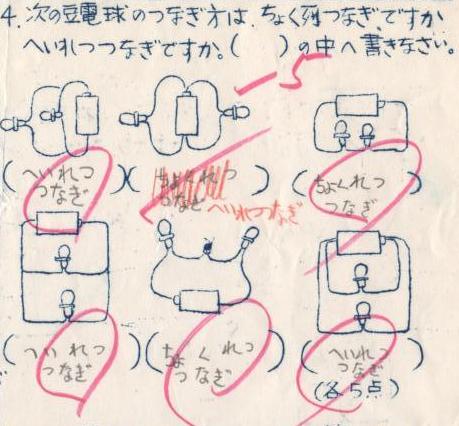 4. 次の豆電球のつなぎ方は、ちょく列つなぎですか
へいれつつなぎですか。( )の中へ書きなさい。
-5
(へいれつ
つなぎ)
(ちょくれつ
つなぎ)
へいれつつなぎ
(ちょくれつ
つなぎ)
(へいれつ
つなぎ)
(ちょくれつ
つなぎ)
(へいれつ
つなぎ)
(各5点)